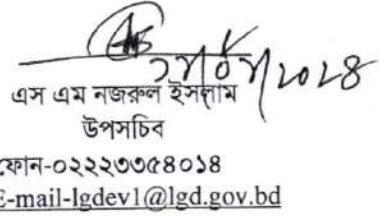 এস এম নজরুল ইসলাম
উপসচিব
ফোন-০২২২৩৩৫৪০১৪
E-mail-lgdev1@lgd.gov.bd